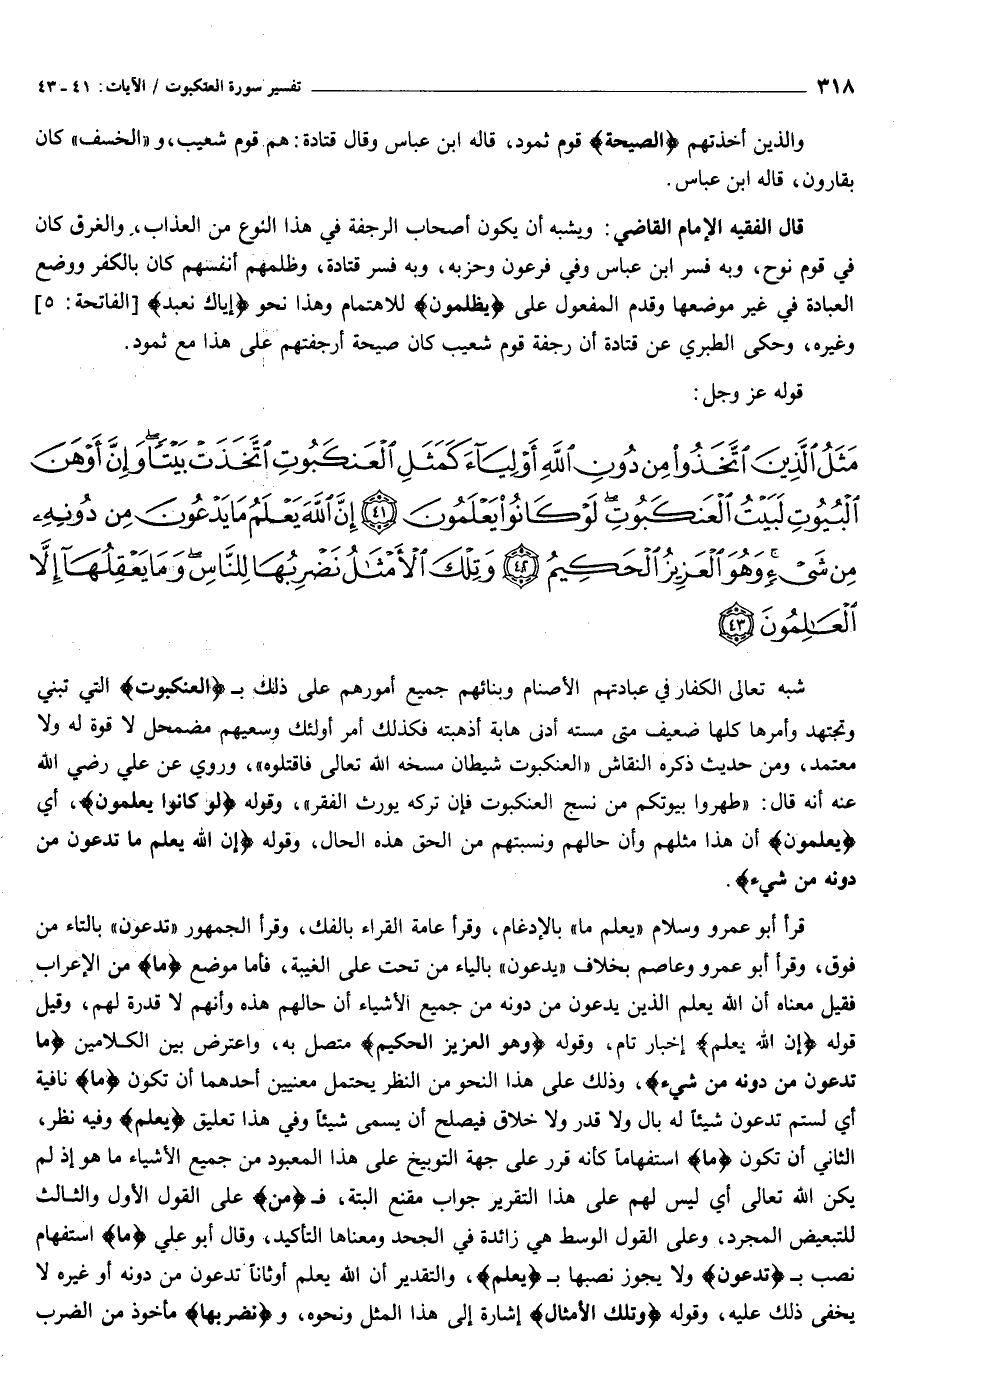 ٣١٨ ــــــــ تفسير سورة العنكبوت / الآيات: ٤١ - ٤٣
والذين أخذتهم ﴿الصيحة﴾ قوم ثمود، قاله ابن عباس وقال قتادة: هم قوم شعيب، و «الخسف» كان
بقارون، قاله ابن عباس.
قال الفقيه الإمام القاضي: ويشبه أن يكون أصحاب الرجفة في هذا النوع من العذاب، والغرق كان
في قوم نوح، وبه فسر ابن عباس وفي فرعون وحزبه، وبه فسر قتادة، وظلمهم أنفسهم كان بالكفر ووضع
العبادة في غير موضعها وقدم المفعول على ﴿يظلمون﴾ للاهتمام وهذا نحو ﴿إياك نعبد﴾ [الفاتحة: ٥]
وغيره، وحكى الطبري عن قتادة أن رجفة قوم شعيب كان صيحة أرجفتهم على هذا مع ثمود.
قوله عز وجل:
مَثَلُ ٱلَّذِينَ ٱتَّخَذُوا۟ مِن دُونِ ٱللَّهِ أَوْلِيَآءَ كَمَثَلِ ٱلْعَنكَبُوتِ ٱتَّخَذَتْ بَيْتًا ۖ وَإِنَّ أَوْهَنَ
ٱلْبُيُوتِ لَبَيْتُ ٱلْعَنكَبُوتِ ۖ لَوْ كَانُوا۟ يَعْلَمُونَ ٤١ إِنَّ ٱللَّهَ يَعْلَمُ مَا يَدْعُونَ مِن دُونِهِۦ
مِن شَىْءٍ ۚ وَهُوَ ٱلْعَزِيزُ ٱلْحَكِيمُ ٤٢ وَتِلْكَ ٱلْأَمْثَـٰلُ نَضْرِبُهَا لِلنَّاسِ ۖ وَمَا يَعْقِلُهَآ إِلَّا
ٱلْعَـٰلِمُونَ ٤٣
شبه تعالى الكفار في عبادتهم الأصنام وبنائهم جميع أمورهم على ذلك بـ ﴿العنكبوت﴾ التي تبني
وتجتهد وأمرها كلها ضعيف متى مسته أدنى هابة أذهبته فكذلك أمر أولئك وسعيهم مضمحل لا قوة له ولا
معتمد، ومن حديث ذكره النقاش «العنكبوت شيطان مسخه الله تعالى فاقتلوه»، وروي عن علي رضي الله
عنه أنه قال: «طهروا بيوتكم من نسج العنكبوت فإن تركه يورث الفقر»، وقوله ﴿لو كانوا يعلمون﴾، أي
﴿يعلمون﴾ أن هذا مثلهم وأن حالهم ونسبتهم من الحق هذه الحال، وقوله ﴿إن الله يعلم ما تدعون من
دونه من شيء﴾.
قرأ أبو عمرو وسلام «يعلم ما» بالإدغام، وقرأ عامة القراء بالفك، وقرأ الجمهور «تدعون» بالتاء من
فوق، وقرأ أبو عمرو وعاصم بخلاف «يدعون» بالياء من تحت على الغيبة، فأما موضع ﴿ما﴾ من الإعراب
فقيل معناه أن الله يعلم الذين يدعون من دونه من جميع الأشياء أن حالهم هذه وأنهم لا قدرة لهم، وقيل
قوله ﴿إن الله يعلم﴾ إخبار تام، وقوله ﴿وهو العزيز الحكيم﴾ متصل به، واعترض بين الكلامين ﴿ما
تدعون من دونه من شيء﴾، وذلك على هذا النحو من النظر يحتمل معنيين أحدهما أن تكون ﴿ما﴾ نافية
أي لستم تدعون شيئاً له بال ولا قدر ولا خلاق فيصلح أن يسمى شيئاً وفي هذا تعليق ﴿يعلم﴾ وفيه نظر،
الثاني أن تكون ﴿ما﴾ استفهاماً كأنه قرر على جهة التوبيخ على هذا المعبود من جميع الأشياء ما هو إذ لم
يكن الله تعالى أي ليس لهم على هذا التقرير جواب مقنع البتة، فـ ﴿من﴾ على القول الأول والثالث
للتبعيض المجرد، وعلى القول الوسط هي زائدة في الجحد ومعناها التأكيد، وقال أبو علي ﴿ما﴾ استفهام
نصب بـ ﴿تدعون﴾ ولا يجوز نصبها بـ ﴿يعلم﴾، والتقدير أن الله يعلم أوثاناً تدعون من دونه أو غيره لا
يخفى ذلك عليه، وقوله ﴿وتلك الأمثال﴾ إشارة إلى هذا المثل ونحوه، و ﴿نضربها﴾ مأخوذ من الضرب